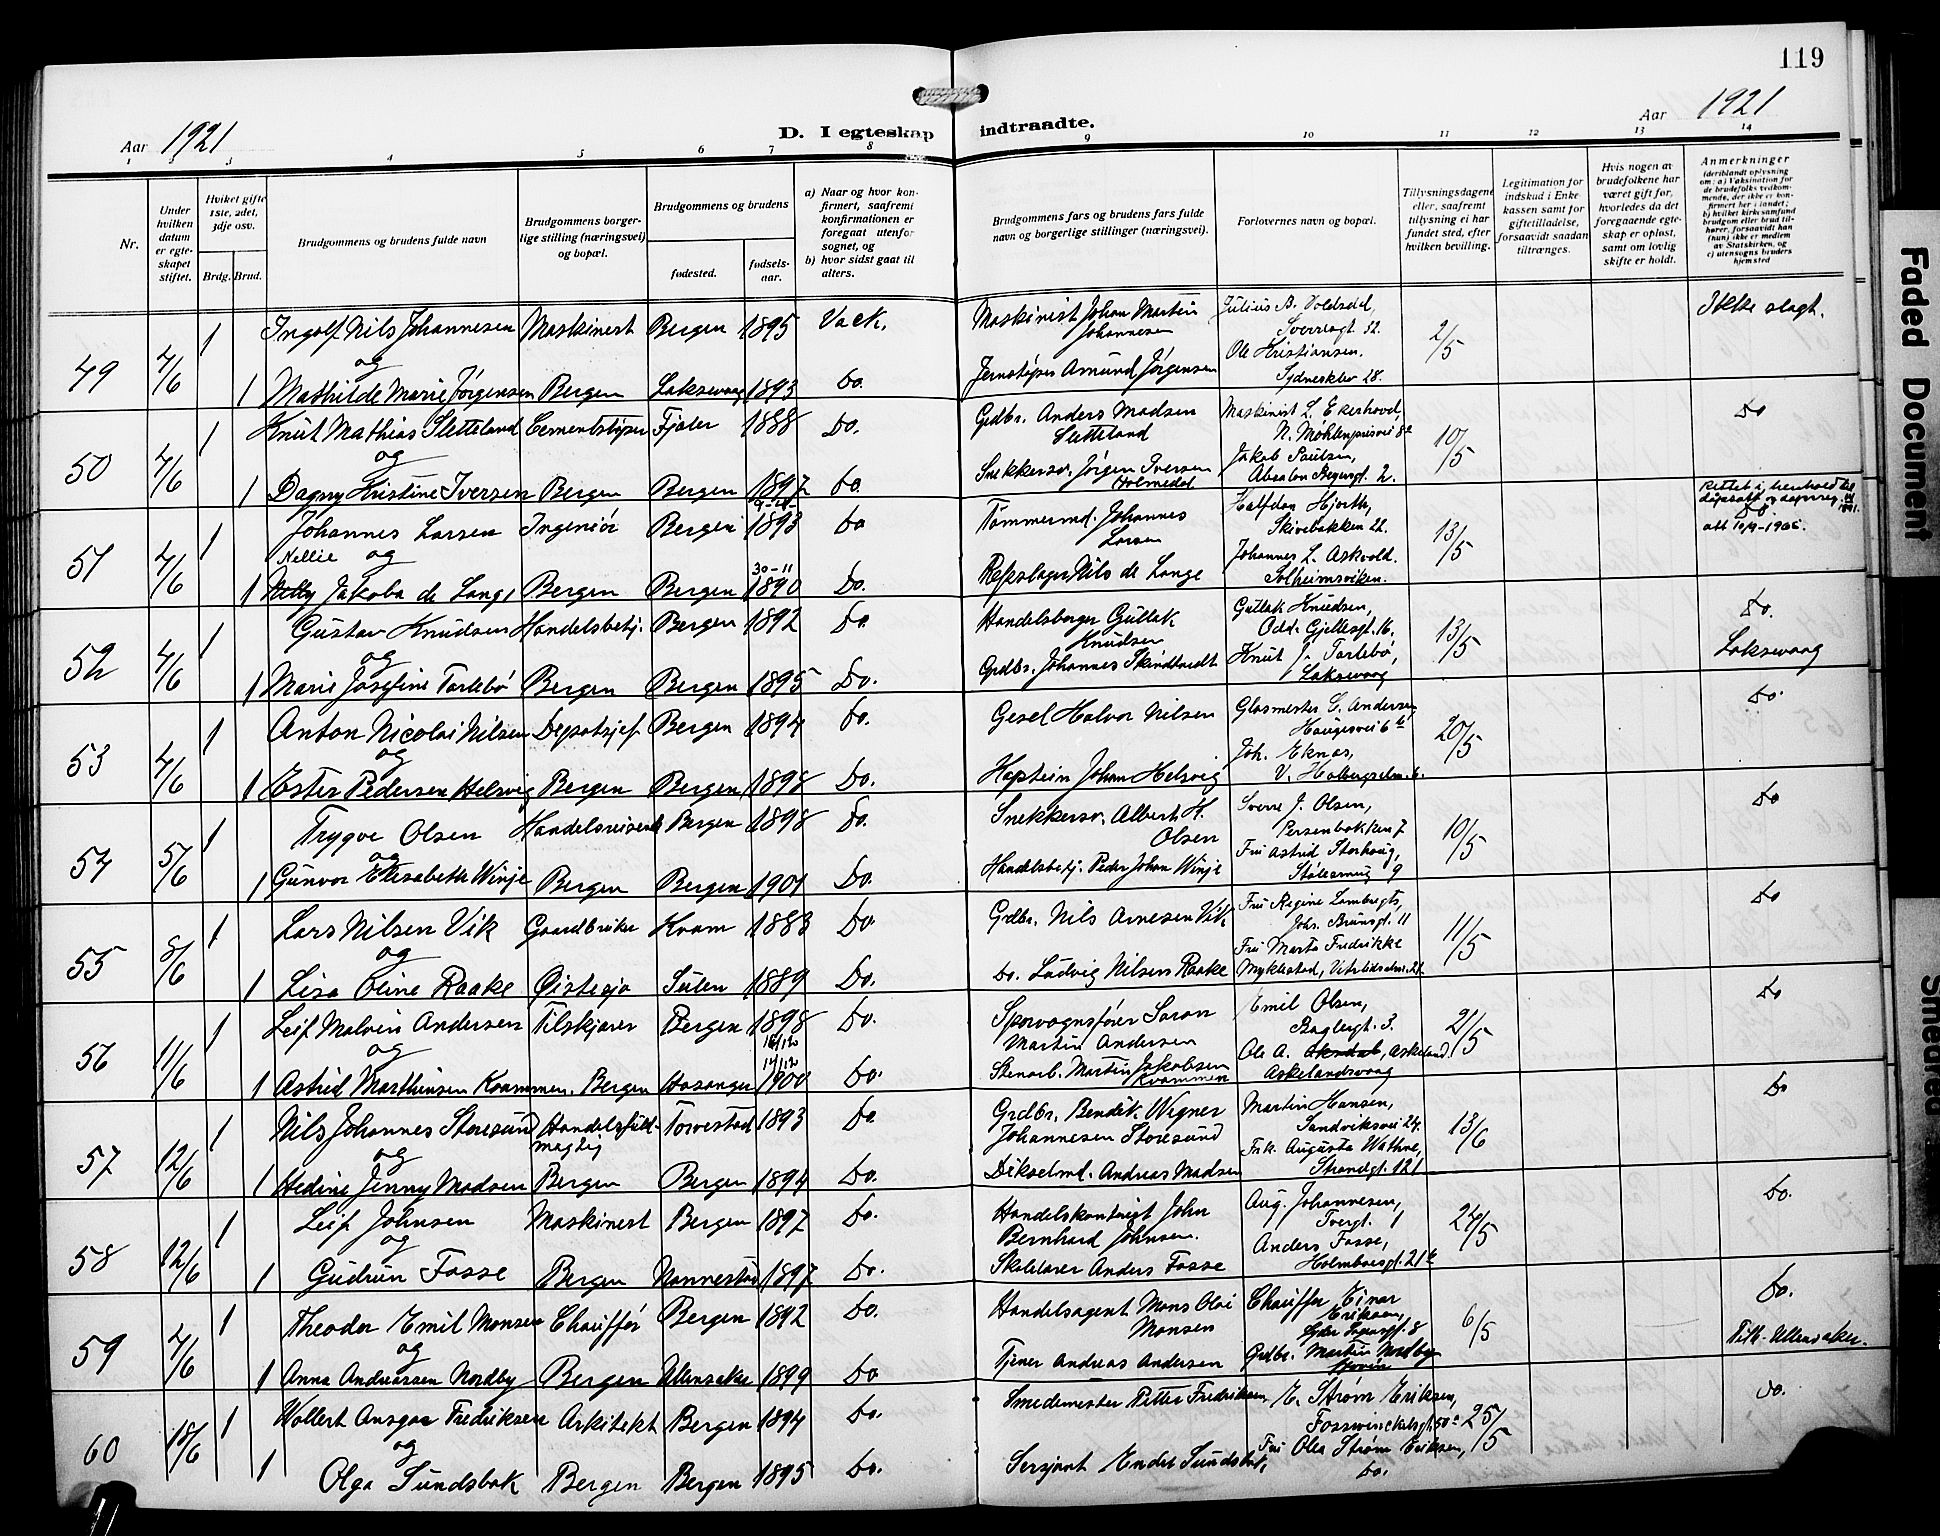 119
Aar 1921
D. I egteskap indtraadte.
Aar 1921
1 2 3 4 5 6 7 8 9 10 11 12 13 14
Nr.
Under hvilken datum er egteskapet stiftet.
Hvilket gifte 1ste, 2det, 3dje osv.
Brdg. Brud.
Brudgommens og brudens fulde navn
Brudgommens borgerlige stilling (næringsvei) og bopæl.
Brudgommens og brudens
fødested. fødselsaar.
a) Naar og hvor konfirmert, saafremt konfirmationen er foregaat utenfor sognet, og
b) hvor sidst gaat til alters.
Brudgommens fars og brudens fars fulde navn og borgerlige stillinger (næringsvei).
Forlovernes navn og bopæl.
Tillysningsdagene eller, saafremt tillysning ei har fundet sted, efter hvilken bevilling.
Legitimation for indskud i Enkekassen samt for giftetilladelse, forsaavidt saadan tiltrænges.
Hvis nogen av brudefolkene har været gift før, hvorledes da det foregaaende egteskap er opløst, samt om lovlig skifte er holdt.
Anmerkninger
(deriblandt oplysning om: a) Vaksination for de brudefolks vedkommende, der ikke er konfirmert her i landet; b) hvilket kirkesamfund brudgom eller brud tilhører, forsaavidt han (hun) ikke er medlem av Statskirken, og c) utensogns bruders hjemsted
49 4/6 1 Ingolf Nils Johannesen Maskinist Bergen 1895 Vack. Maskinist Johan Martin Johannesen Julius B. Voldsdal, Sverresgt. 32. 2/5 Ikke slegt.
og
1 Mathilde Marie Jørgensen Bergen Laksevaag 1893 Do. Jernstøper Amund Jørgensen Ole Kristiansen. Sydneskler 28.
50 4/6 1 Knut Mathias Sletteland Cementstøper Fjaler 1888 Do. Grdbr. Anders Madsen Sletteland Maskinist L. Ekerhovd, N. Møhlenprisvei 8a 10/5 Do
og
1 Dagny Kristine Iversen Bergen Bergen 1897 Do. Snekkersv. Jørgen Iversen Holmedal Jakob Paulsen, Absalon Beyersgt. 2.
51 4/6 1 Johannes Larsen Ingeniør Bergen 1893 Do Tømmermd. Johannes Larsen Halfdan Hjorth, Skivebakken 22. 13/5
Nellie og
30-11
1 Nelly Jakoba de Lange Bergen Bergen 1890 Do. Repslager Nils de Lange Johannes L. Askvold. Solheimsviken.
52 4/6 1 Gustav Knudsen Handelsbetj. Bergen 1892 Do. Handelsborger Gullak Knudsen Gullak Knudsen, Odd. Gjellesgt. 16. 13/5 Do.
og
1 Marie Josefine Tartebø Bergen Bergen 1895 Do. Grdbr. Johannes Knut J. Tartebø, Laksevaag Laksevaag
53 4/6 1 Anton Nicolai Nilsen Depotsjef Bergen 1894 Do. Gesel Halvor Nilsen Glasmester G. Andersen Haugesvei 6b 20/5 Do.
og
1 Ester Pedersen Helsvig Bergen Bergen 1898 Do. Kaptein Johan Helsvig Joh. Eknas, V. Holbergsalm. 6.
54 5/6 1 Trygve Olsen Handelsreisende Bergen 1898 Do. Snekkersv. Albert H. Olsen Sverre J. Olsen, Persenbakken 7 10/5 Do
og
1 Gunvor Elisabeth Winje Bergen Bergen 1901 Do. Handelsbetj. Peder Johan Winje Fru Astrid Storhaug, 9
55 8/6 1 Lars Nilsen Vik Gaardbruker Kvam 1883 Do Grdbr. Nils Arnesen Vik Fru Regine Lambregts, Joh. Brunsgt. 11 11/5 Do
og
1 Lisa Oline Raake Øistesjø Sulen 1889 Do. Do. Ludvig Nilsen Raake Fru Marta Fredrikke Myklestad, Vitrlidsalm. 21
56 11/6 1 Leif Malvin Andersen Tilskjærer Bergen 1898 Do. Sporvognsfører Søren Martin Andersen Emil Olsen, Baglergt. 3. 21/5 Do
og
1 Astrid Marthinsen Kvammen. Bergen Hosanger 1900 Do. Stenarb. Martin Jakobsen Kvammen Ole A. Askeland Askelandsvaag
57 12/6 1 Nils Johannes Storesund Handelsfuldmægtig Torvestad 1893 Do. Grdbr. Bendik Wigner Johannesen Storesund Martin Hansen, Sandviksvei 24. 13/6 Do
og
1 Hedine Jenny Madsen Bergen Bergen 1894 Do. Dikselmd. Andreas Madsen Frk. Augusta Wathne, Strandgt. 121
58 12/6 1 Leif Johnsen Maskinist Bergen 1897 Do. Handelskontorist John Bernhard Johnsen. Aug. Johannesen, Tvergt. 1 24/5 Do.
og
1 Gudrun Fosse Bergen Nannestad 1897 Do. Skolelærer Anders Fosse Anders Fosse, Holmboesgt. 21b
59 4/6 1 Theodor Emil Monsen Chauffør Bergen 1892 Do. Handelsagent Mons Olai Monsen Chauffør Einar Eriksen, 8 6/5 Do.
og
1 Anna Andreassen Nordby Bergen Ullensaker 1899 Do Tjener Andreas Andersen Grdbr. Martin Nordby Ullensaker.
60 18/6 1 Wollert Ansgar Fredriksen Arkitekt Bergen 1894 Do. Smedemester Petter Fredriksen, E. Strøm Eriksen, Fosswinckelsgt. 50c 25/5 Do.
og
1 Olga Sundsbak Bergen Bergen 1895 Do. Sersjant Endre Sundsbak, Fru Olea Strøm Eriksen, Do.
Faded Document
Smeared